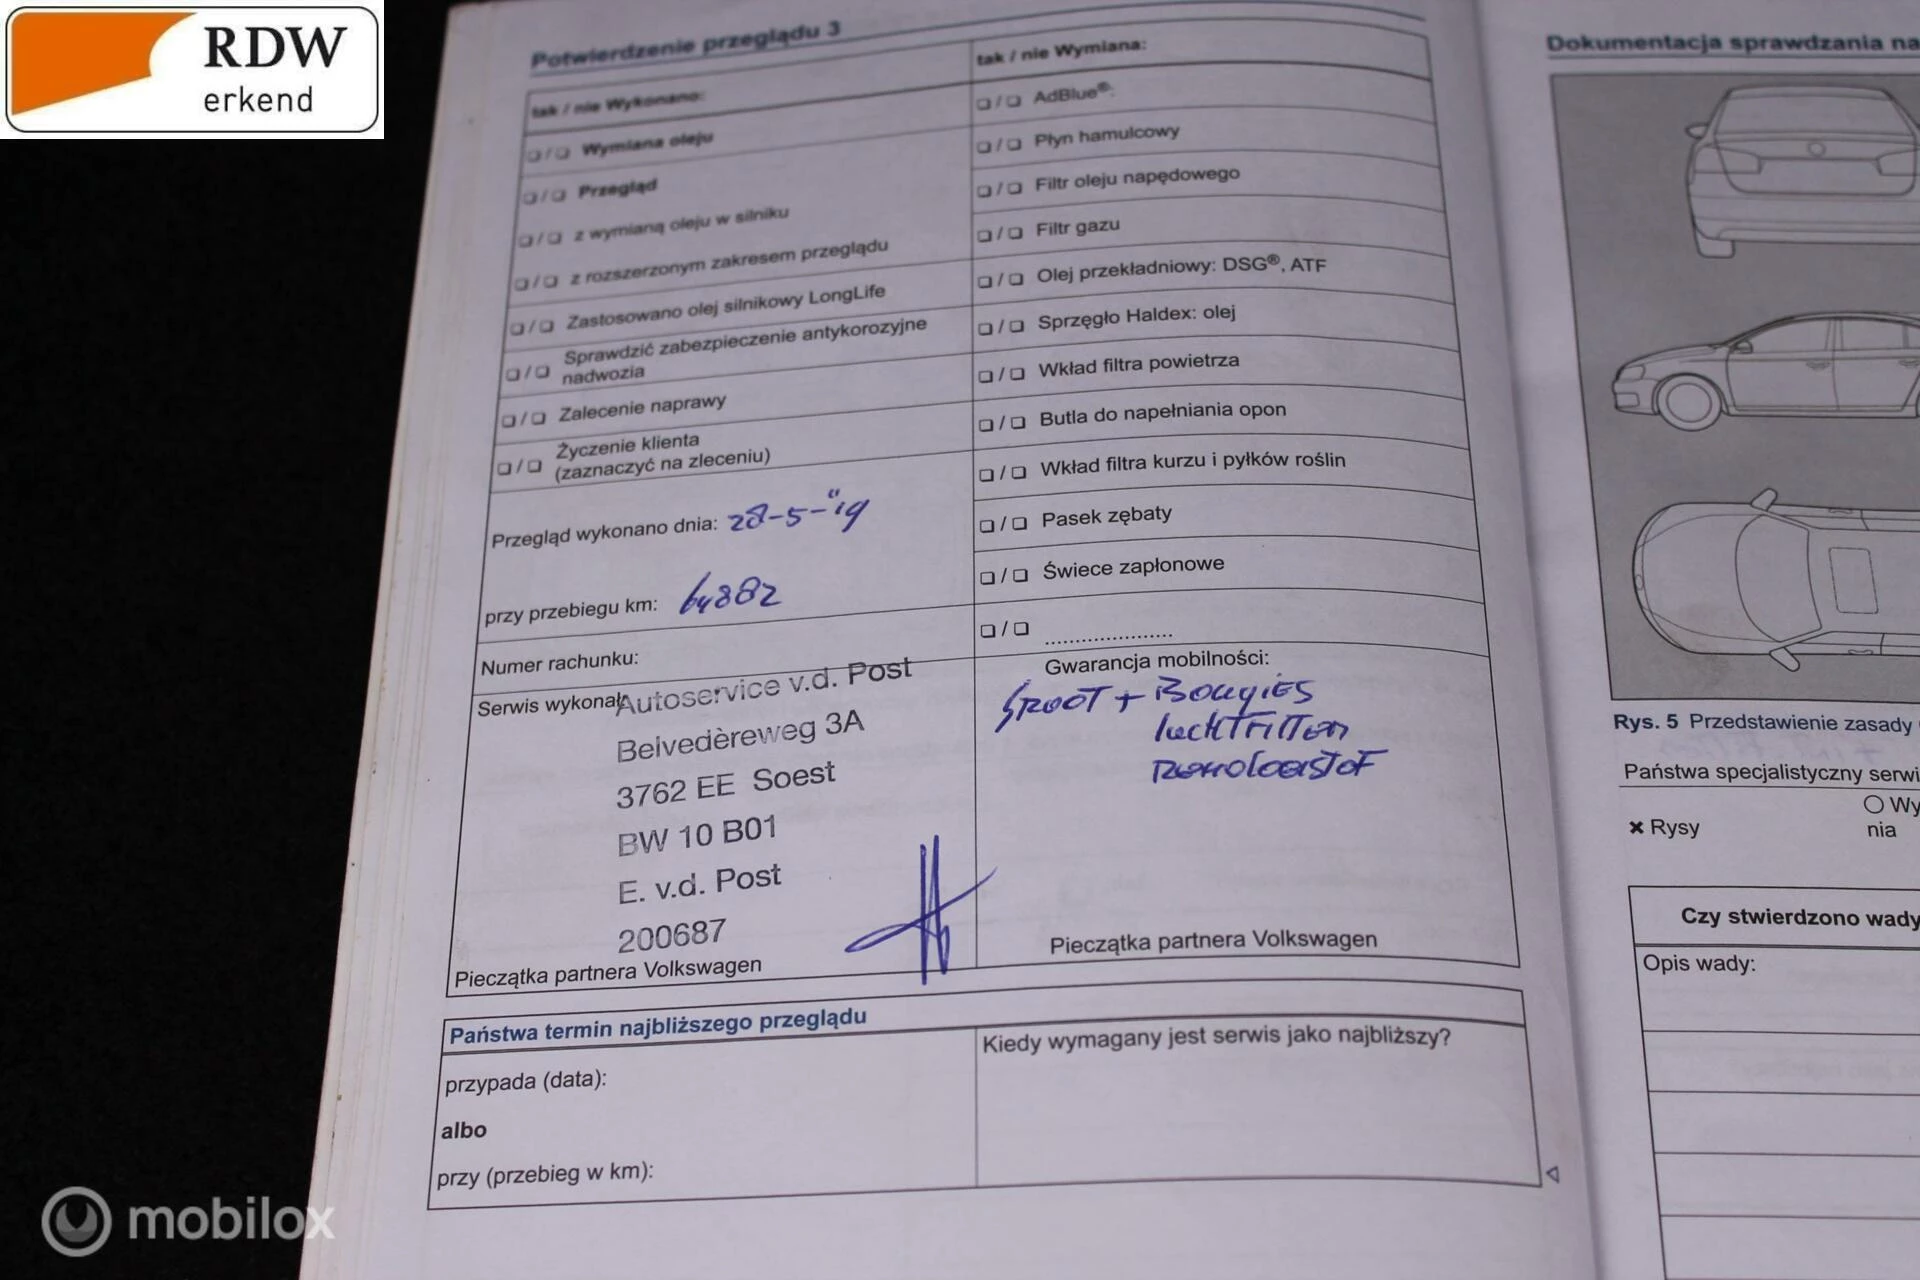 RDW
erkend
Potwierdzenie przeglądu 3
tak / nie Wykonano:
❏ / ❏ Wymiana oleju
❏ / ❏ Przegląd
❏ / ❏ z wymianą oleju w silniku
❏ / ❏ z rozszerzonym zakresem przeglądu
❏ / ❏ Zastosowano olej silnikowy LongLife
❏ / ❏ Sprawdzić zabezpieczenie antykorozyjne
nadwozia
❏ / ❏ Zalecenie naprawy
❏ / ❏ Życzenie klienta
(zaznaczyć na zleceniu)
Przegląd wykonano dnia: 28-5-"19
przy przebiegu km: 64882
Numer rachunku:
Serwis wykonał:
Autoservice v.d. Post
Belvedèreweg 3A
3762 EE Soest
BW 10 B01
E. v.d. Post
200687
Pieczątka partnera Volkswagen
tak / nie Wymiana:
❏ / ❏ AdBlue®:
❏ / ❏ Płyn hamulcowy
❏ / ❏ Filtr oleju napędowego
❏ / ❏ Filtr gazu
❏ / ❏ Olej przekładniowy: DSG®, ATF
❏ / ❏ Sprzęgło Haldex: olej
❏ / ❏ Wkład filtra powietrza
❏ / ❏ Butla do napełniania opon
❏ / ❏ Wkład filtra kurzu i pyłków roślin
❏ / ❏ Pasek zębaty
❏ / ❏ Świece zapłonowe
❏ / ❏ .....................
Gwarancja mobilności:
GROOT + Bougies
luchtfilter
remvloeistof
Pieczątka partnera Volkswagen
Państwa termin najbliższego przeglądu
przypada (data):
albo
przy (przebieg w km):
Kiedy wymagany jest serwis jako najbliższy?
Dokumentacja sprawdzania na
Rys. 5 Przedstawienie zasady
Państwa specjalistyczny serwi
✖ Rysy
○ Wy
nia
Czy stwierdzono wady
Opis wady:
mobilox